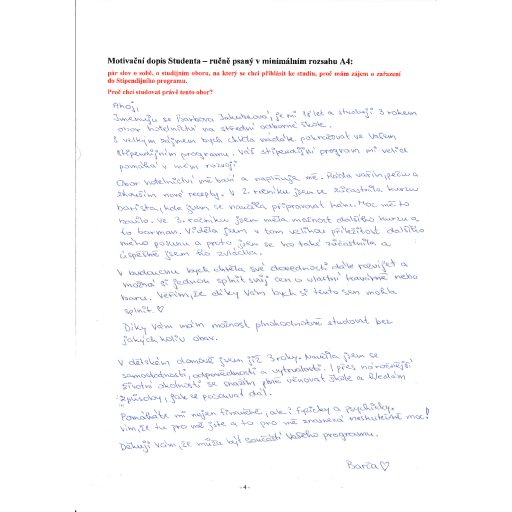 Motivační dopis Studenta – ručně psaný v minimálním rozsahu A4:
pár slov o sobě, o studijním oboru, na který se chci přihlásit ke studiu, proč mám zájem o zařazení
do Stipendijního programu.
Proč chci studovat právě tento obor?
Ahoj,
Jmenuji se Barbora Jakubcová, je mi 18 let a studuji 3 rokem
obor hotelnictví na střední odborné škole.
S velkým zájmem bych chtěla nadále pokračovat ve Vašem
stipendijním programu. Váš stipendijní program mi velice
pomáhá v mém rozvoji.
Obor hotelnictví mě baví a naplňuje mě. Ráda vařím, peču a
zkouším nové recepty. V 2. ročníku jsem se zúčastnila kurzu
barista, kde jsem se naučila připravovat kávu. Moc mě to
bavilo. Ve 3. ročníku jsem měla možnost dalšího kurzu a
to barman. Viděla jsem v tom velikou příležitost dalšího
mého posunu a proto jsem se ho také zúčastnila a
úspěšně jsem ho zvládla.
V budoucnu bych chtěla své dovednosti dále rozvíjet a
možná si jednou splnit svůj sen o vlastní kavárně nebo
baru. Věřím, že díky Vám bych si tento sen mohla
splnit ♡
Díky Vám mám možnost plnohodnotně studovat bez
jakýchkoliv obav.
V dětském domově jsem již 3 roky. Naučila jsem se
samostatnosti, odpovědnosti a vytrvalosti. I přes náročnější
životní okolnosti se snažím plně věnovat škole a hledám
způsoby, jak se posouvat dál.
Pomáháte mi nejen finančně, ale i fyzicky a psychicky.
Vím, že tu pro mě jste a to pro mě znamená neskutečně moc!
Děkuji Vám, že můžu být součástí Vašeho programu.
Barča ♡
- 4 -